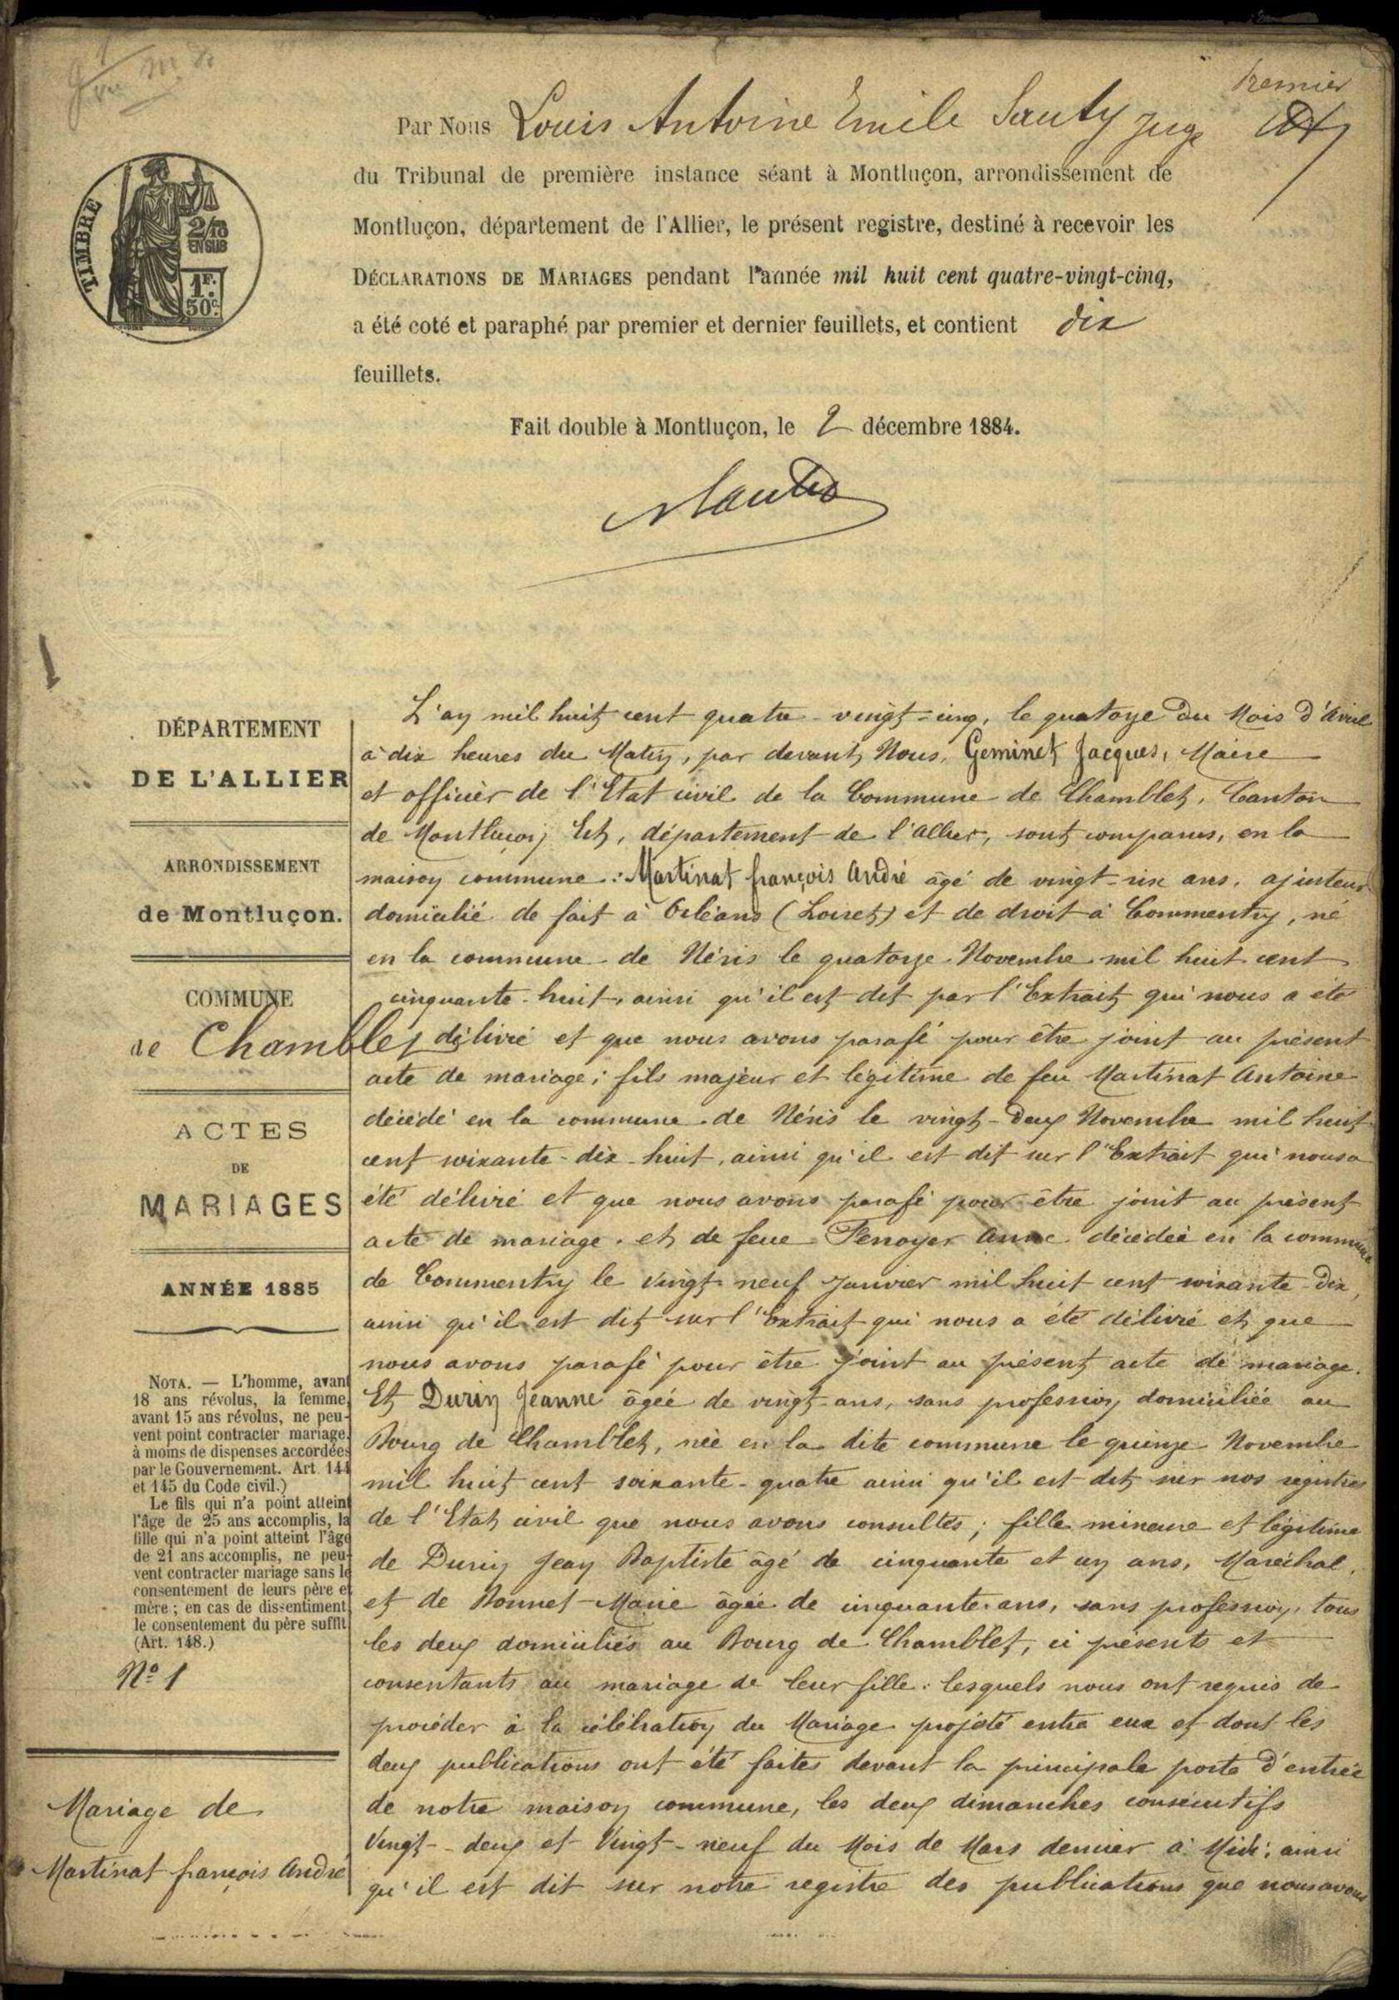 Premier
Par Nous Louis Antoine Emile Sauty Juge
du Tribunal de première instance séant à Montluçon, arrondissement de
Montluçon, département de l'Allier, le présent registre, destiné à recevoir les
DÉCLARATIONS DE MARIAGES pendant l'année mil huit cent quatre-vingt-cinq,
a été coté et paraphé par premier et dernier feuillets, et contient dix
feuillets.
Fait double à Montluçon, le 2 décembre 1884.
TIMBRE
2/10
EN SUS
1F.
50c.
1
DÉPARTEMENT
DE L'ALLIER
ARRONDISSEMENT
de Montluçon.
COMMUNE
de Chamblet
ACTES
DE
MARIAGES
ANNÉE 1885
NOTA. — L'homme, avant
18 ans révolus, la femme,
avant 15 ans révolus, ne peu-
vent point contracter mariage,
à moins de dispenses accordées
par le Gouvernement. Art. 144
et 145 du Code civil.)
Le fils qui n'a point atteint
l'âge de 25 ans accomplis, la
fille qui n'a point atteint l'âge
de 21 ans accomplis, ne peu-
vent contracter mariage sans le
consentement de leurs père et
mère ; en cas de dissentiment,
le consentement du père suffit.
(Art. 148.)
No 1
Mariage de
Martinat françois André
L'an mil huit cent quatre-vingt-cinq, le quatorze du Mois d'Avril
à dix heures du Matin, par devant Nous, Geminet Jacques, Maire
et officier de l'Etat civil de la Commune de Chamblet, Canton
de Montluçon Est, département de l'Allier, sont comparus, en la
maison commune : Martinat françois André âgé de vingt-six ans, ajusteur
domicilié de fait à Orléans (Loiret) et de droit à Commentry, né
en la commune de Néris le quatorze Novembre mil huit cent
cinquante-huit, ainsi qu'il est dit par l'Extrait qui nous a été
délivré et que nous avons parafé pour être joint au présent
acte de mariage ; fils majeur et légitime de feu Martinat Antoine
décédé en la commune de Néris le vingt-deux Novembre mil huit
cent soixante-dix-huit, ainsi qu'il est dit sur l'Extrait qui nous a
été délivré et que nous avons parafé pour être joint au présent
acte de mariage. et de feue Fenoyer Anne décédée en la commune
de Commentry le vingt neuf Janvier mil huit cent soixante-dix,
ainsi qu'il est dit sur l'Extrait qui nous a été délivré et que
nous avons parafé pour être joint au présent acte de mariage.
Et Durin Jeanne âgée de vingt ans, sans profession domiciliée au
Bourg de Chamblet, née en la dite commune le quinze Novembre
mil huit cent soixante-quatre ainsi qu'il est dit sur nos registres
de l'Etat civil que nous avons consultés ; fille mineure et légitime
de Durin Jean Baptiste âgé de cinquante et un ans, Maréchal,
et de Bonnet Marie âgée de cinquante ans, sans profession, tous
les deux domiciliés au Bourg de Chamblet, ci présents et
consentants au mariage de leur fille : lesquels nous ont requis de
procéder à la célébration du Mariage projeté entre eux et dont les
deux publications ont été faites devant la principale porte d'entrée
de notre maison commune, les deux dimanches consécutifs
Vingt-deux et Vingt-neuf du Mois de Mars dernier à Midi ; ainsi
qu'il est dit sur notre registre des publications que nous avons